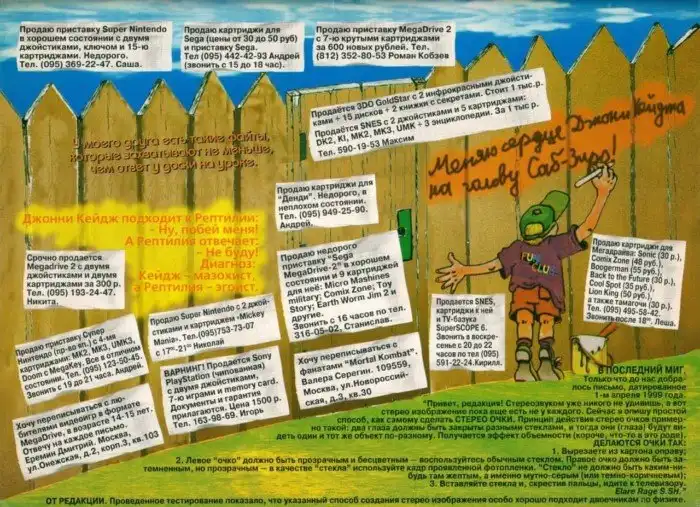 Продаю приставку Super Nintendo
в хорошем состоянии с двумя
джойстиками, ключом и 15-ю
картриджами. Недорого.
Тел. (095) 369-22-47. Саша.
Продаю картриджи для
Sega (цены от 30 до 50 руб)
и приставку Sega.
Тел (095) 442-42-93 Андрей
(звонить с 15 до 18 час).
Продаю приставку MegaDrive 2
с 7-ю крутыми картриджами
за 600 новых рублей. Тел.
(812) 352-80-53 Роман Кобзев
Продаётся 3DO GoldStar с 2 инфрокрасными джойсти-
ками + 15 дисков + 2 книжки с секретами. Стоит 1 тыс.р.
Продаётся SNES с 2 джойстиками и 5 картриджами:
DK2, KI, MK2, MK3, UMK + 3 энциклопедии. За 1 тыс р.
Тел. 590-19-53 Максим
У моего друга есть такие файты,
которые захватывают не меньше,
чем ответ у доски на уроке.
Меняю сердце Джони Кейджа
на голову Саб-Зиро!
Джонни Кейдж подходит к Рептилии:
- Ну, побей меня!
А Рептилия отвечает:
- Не буду!
Диагноз:
Кейдж - мазохист,
а Рептилия - эгоист.
Продаю картриджи для
"Денди". Недорого, в
неплохом состоянии.
Тел. (095) 949-25-90.
Андрей.
Срочно продается
Megadrive 2 с двумя
джойстиками и двумя
картриджами за 300 р.
Тел. (095) 193-24-47.
Никита.
Продаю недорого
приставку "Sega
MegaDrive-2" в хорошем
состоянии и 9 картриджей
для неё: Micro Mashines
military; Comix Zone; Toy
Story; Earth Worm Jim 2 и
другие.
Звонить с 16 часов по тел.
316-05-02, Станислав.
Продаю картриджи для
Мегадрайва: Sonic (30 р.),
Comix Zone (48 руб.),
Boogerman (55 руб.),
Back to the Future (30 р.),
Cool Spot (35 руб.),
Lion King (50 руб.),
а также тамагочи (30 р.).
Тел. (095) 495-58-42.
Звонить после 18ⁿ. Леша.
Продается SNES,
картриджи к ней
и TV-базука
SuperSCOPE 6.
Звонить в воскре-
сенье с 20 до 22
часов по тел (095)
591-22-24.Кирилл.
Продаю приставку Супер
нинтендо (пр-во яп.) с 4-мя
картриджами: MK2, MK3, UMK3,
Doom с MegaKey. Все в отличном
состоянии. Тел. (095) 123-50-45.
Звонить с 19 до 21 часа. Андрей.
Продаю Super Nintendo с 2 джой-
стиками и картриджем «Mickey
Mania». Тел.(095)573-73-07
с 17ººдо 21ºº Николай
ВАРНИНГ! Продается Sony
PlayStation (чипованная)
с двумя джойстиками,
7-ю играми и memory card.
Документы и гарантия
прилагаются. Цена 1500 р.
Тел. 163-98-69. Игорь
Хочу переписываться с
фанатами "Mortal Kombat".
Валера Серегин. 109559,
Москва, ул.Новороссий-
ская, д.3, кв.30
Хочу переписываться с лю-
бителями видеоигр в формате
MegaDrive, в возрасте 14-15 лет.
Отвечу на каждое письмо.
Еремин Дмитрий. Москва,
ул.Онежская, д.2, корп.3, кв.103
В ПОСЛЕДНИЙ МИГ
Только что до нас добра-
лось письмо, датированное
1-м апреля 1999 года.
"Привет, редакция! Стереозвуком уже никого не удивишь, а вот
стерео изображение пока еще есть не у каждого. Сейчас я опишу простой
способ, как самому сделать СТЕРЕО ОЧКИ. Принцип действия стерео очков пример-
но такой: два глаза должны быть закрыты разными стеклами, и тогда они (глаза) будут ви-
деть один и тот же объект по-разному. Получается эффект объемности (короче, что-то в это роде)!
ДЕЛАЮТСЯ ОЧКИ ТАК:
1. Вырезаете из картона оправу;
2. Левое "очко" должно быть прозрачным и бесцветным — воспользуйтесь обычным стеклом. Правое очко должно быть за-
темненным, но прозрачным — в качестве "стекла" используйте кадр проявленной фотопленки. "Стекло" не должно быть каким-ни-
будь там желтым, а именно мутно-серым (или темно-коричневым);
3. Вставляйте стекла и, скрестив пальцы, идите к телевизору.
Elare Rage S.SH."
ОТ РЕДАКЦИИ. Проведенное тестирование показало, что указанный способ создания стерео изображения особо хорошо подходит двоечникам по физике.